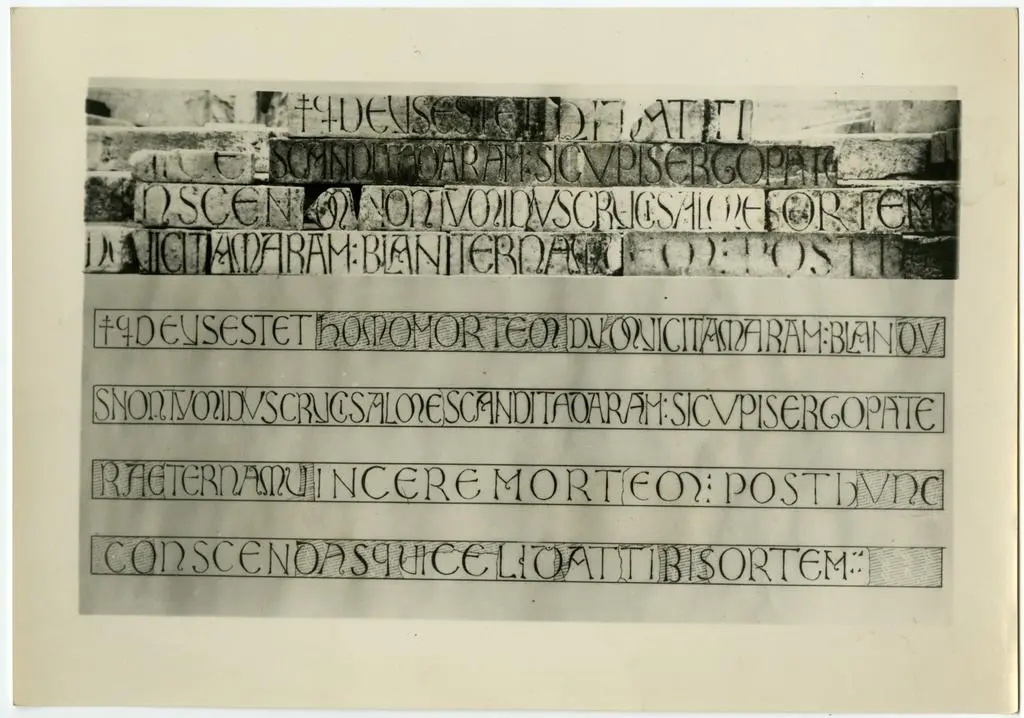 ‡ꟼDEUSESTET DIT ATTI
SCANDITADARAM:SICVPISERGOPATE
NSCEN M NONTVMIDVSCRUCISALME SORTEM
VICITAMARAM:BLAN TERNAMU EM: POSTI
‡ꟼDEUSESTETHOMOMORTEMDUMVICITAMARAM:BLANDV
SNONTVMIDVSCRUCISALMESCANDITADARAM:SICVPISERGOPATE
RAETERNAMUINCEREMORTEM:POSTHVNC
CONSCENDASQUICELIDATTIBISORTEM:·